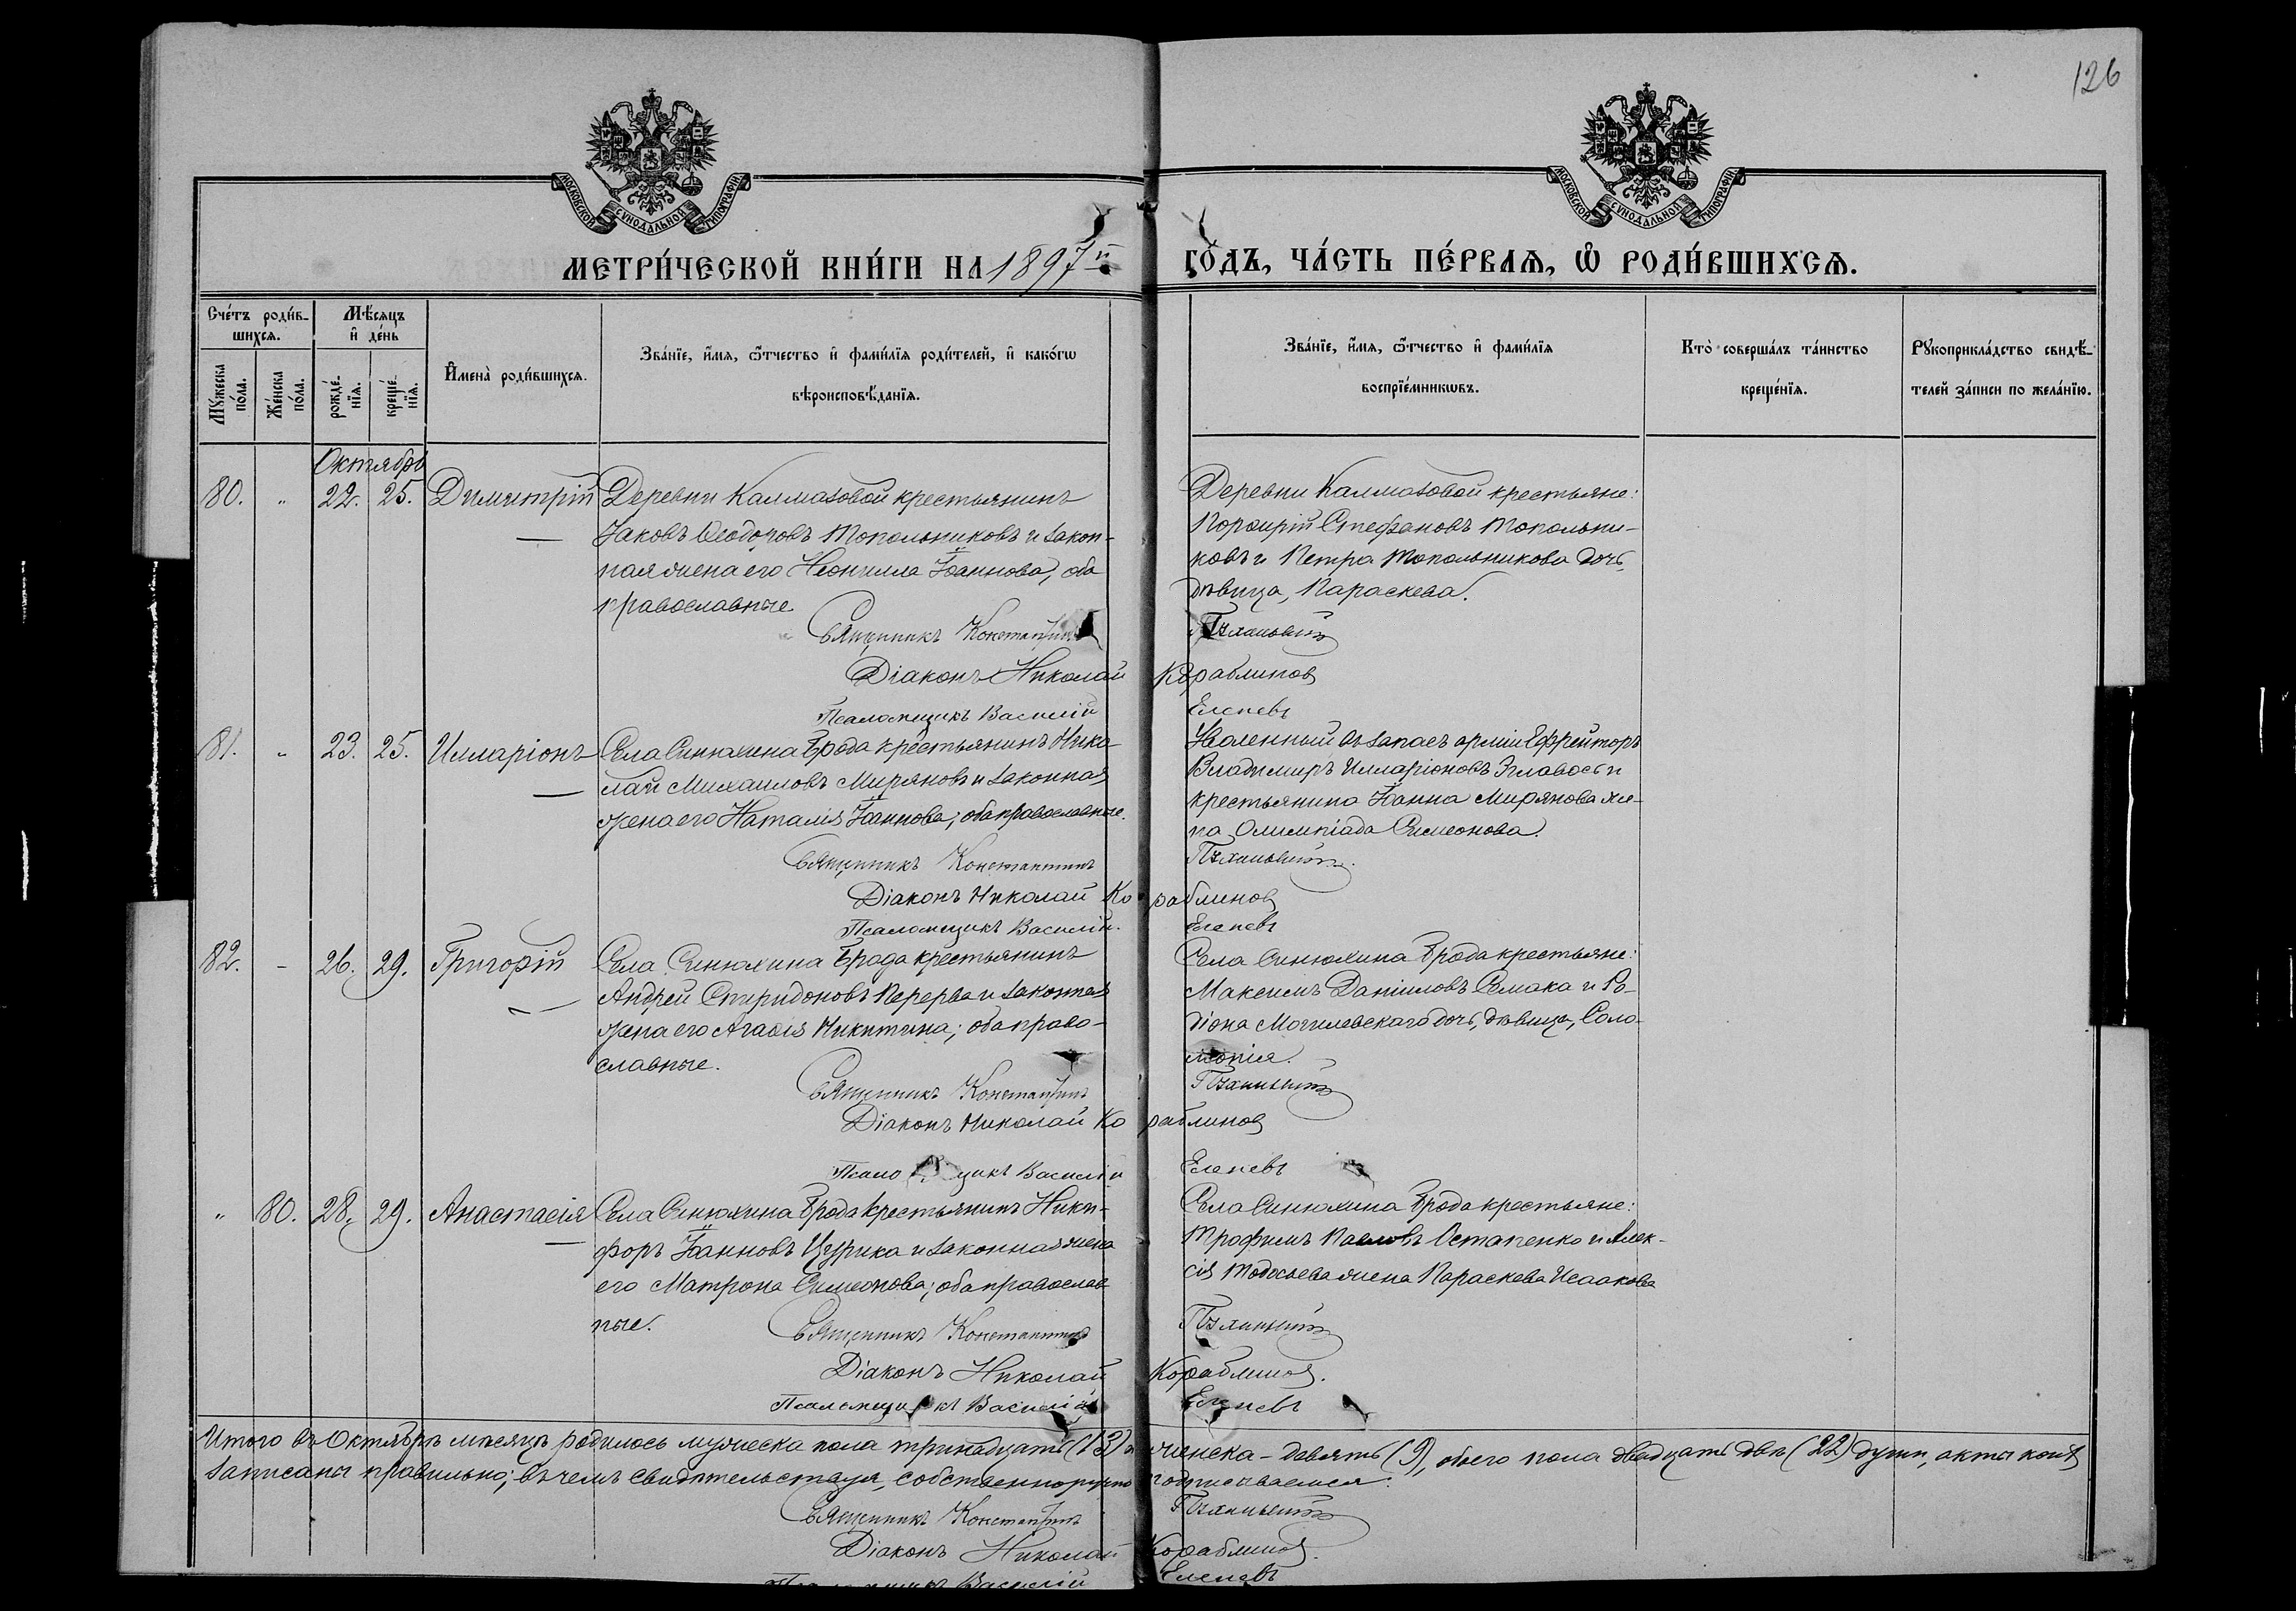 126
МОСКОВСКОЙ СѴНОДАЛЬНОЙ ТИПОГРАФІИ
МОСКОВСКОЙ СѴНОДАЛЬНОЙ ТИПОГРАФІИ
МЕТРИ́ЧЕСКОЙ КНИ́ГИ НА 1897й
ГО́ДЪ, ЧА́СТЬ ПЕ́РВАѦ, Ѡ҆ РОДИ́ВШИХСѦ.
Сче́тъ роди́в-
шихсѧ.
Мѣ́сѧцъ
и҆ де́нь
Мꙋ́жеска
по́ла.
Же́нска
по́ла.
рожде́-
нїѧ.
креще́-
нїѧ.
И҆мена̀ роди́вшихсѧ.
Зва́нїе, и҆́мѧ, ѻ҆́тчество и҆ фами́лїѧ роди́телей, и҆ како́гѡ
вѣроисповѣ́данїѧ.
Зва́нїе, и҆́мѧ, ѻ҆́тчество и҆ фами́лїѧ
воспрїе́мникѡвъ.
Кто̀ соверша́лъ та́инство
креще́нїѧ.
Рꙋкоприкла́дство свидѣ́-
телей за́писи по жела́нїю.
Октябрь
80. " 22. 25. Димитрій Деревни Калмазовой крестьянинъ
Іаковъ Ѳеодоровъ Топольниковъ и закон-
ная жена его Неонилла Іоаннова, оба
православные.
Деревни Калмазовой крестьяне:
Порфирій Стефановъ Топольни-
ковъ и Петра Топольникова дочь,
дѣвица, Параскева.
Священникъ Константинъ
Діаконъ Николай Кораблиновъ
Псаломщикъ Василій Еленевъ
81. " 23. 25. Илларіонъ Села Синюхина Брода крестьянинъ Нико-
лай Михаиловъ Миряновъ и законная
жена его Наталія Іоаннова; оба православные.
Уволенный въ запасъ арміи Ефрейторъ
Владимиръ Илларіоновъ и
крестьянина Іоанна Мирянова же-
на Олимпіада Симеонова.
Священникъ Константинъ
Діаконъ Николай Кораблиновъ
Псаломщикъ Василій Еленевъ
82. - 26. 29. Григорій Села Синюхина Брода крестьянинъ
Андрей Спиридоновъ Перерва и законная
жена его Агаѳія Никитина; оба право-
славные.
Села Синюхина Брода крестьяне:
Максимъ Даніиловъ Семака и Ро-
діона Могилевскаго дочь, дѣвица, Соло-
монія.
Священникъ Константинъ
Діаконъ Николай Кораблиновъ
Псаломщикъ Василій Еленевъ
" 80. 28. 29. Анастасія Села Синюхина Брода крестьянинъ Ники-
форъ Іоанновъ Цурика и законная жена
его Матрона Симеонова; оба православ-
ные.
Села Синюхина Брода крестьяне:
Трофимъ Павловъ Остапенко и Алек-
сія Тодосьева жена Параскева Исаакова
Священникъ Константинъ
Діаконъ Николай Кораблиновъ.
Псаломщикъ Василій Еленевъ
Итого въ Октябрѣ мѣсяцѣ родилось мужеска пола тринадцать (13) и женска - девять (9), обоего пола двадцать двѣ (22) души, акты коихъ
записаны правильно; въ чемъ свидѣтельствуя, собственноручно подписываемся:
Священникъ Константинъ
Діаконъ Николай Кораблиновъ.
Псаломщикъ Василій Еленевъ